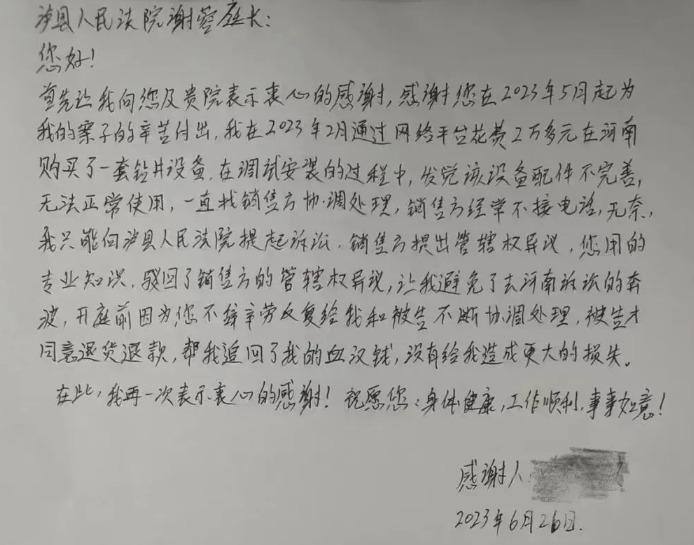 泸县人民法院谢蓉庭长:
您好!
首先让我向您及贵院表示衷心的感谢,感谢您在2023年5月起为
我的案子的辛苦付出,我在2023年2月通过网络平台花费2万多元在河南
购买了一套铅片设备,在调试安装的过程中,发觉该设备配件不完善,
无法正常使用,一直找销售方协调处理,销售方经常不接电话,无奈,
我只能向泸县人民法院提起诉讼,销售方提出管辖权异议,您用的
专业知识,驳回了销售方的管辖权异议,让我避免了去河南诉讼的奔
波,开庭前因为您不辞辛劳反复给我和被告不断协调处理,被告才
同意退货退款,帮我追回了我的血汗钱,没有给我造成更大的损失。
在此,我再一次表示衷心的感谢!祝愿您:身体健康,工作顺利,事事如意!
感谢人
2023年6月26日.